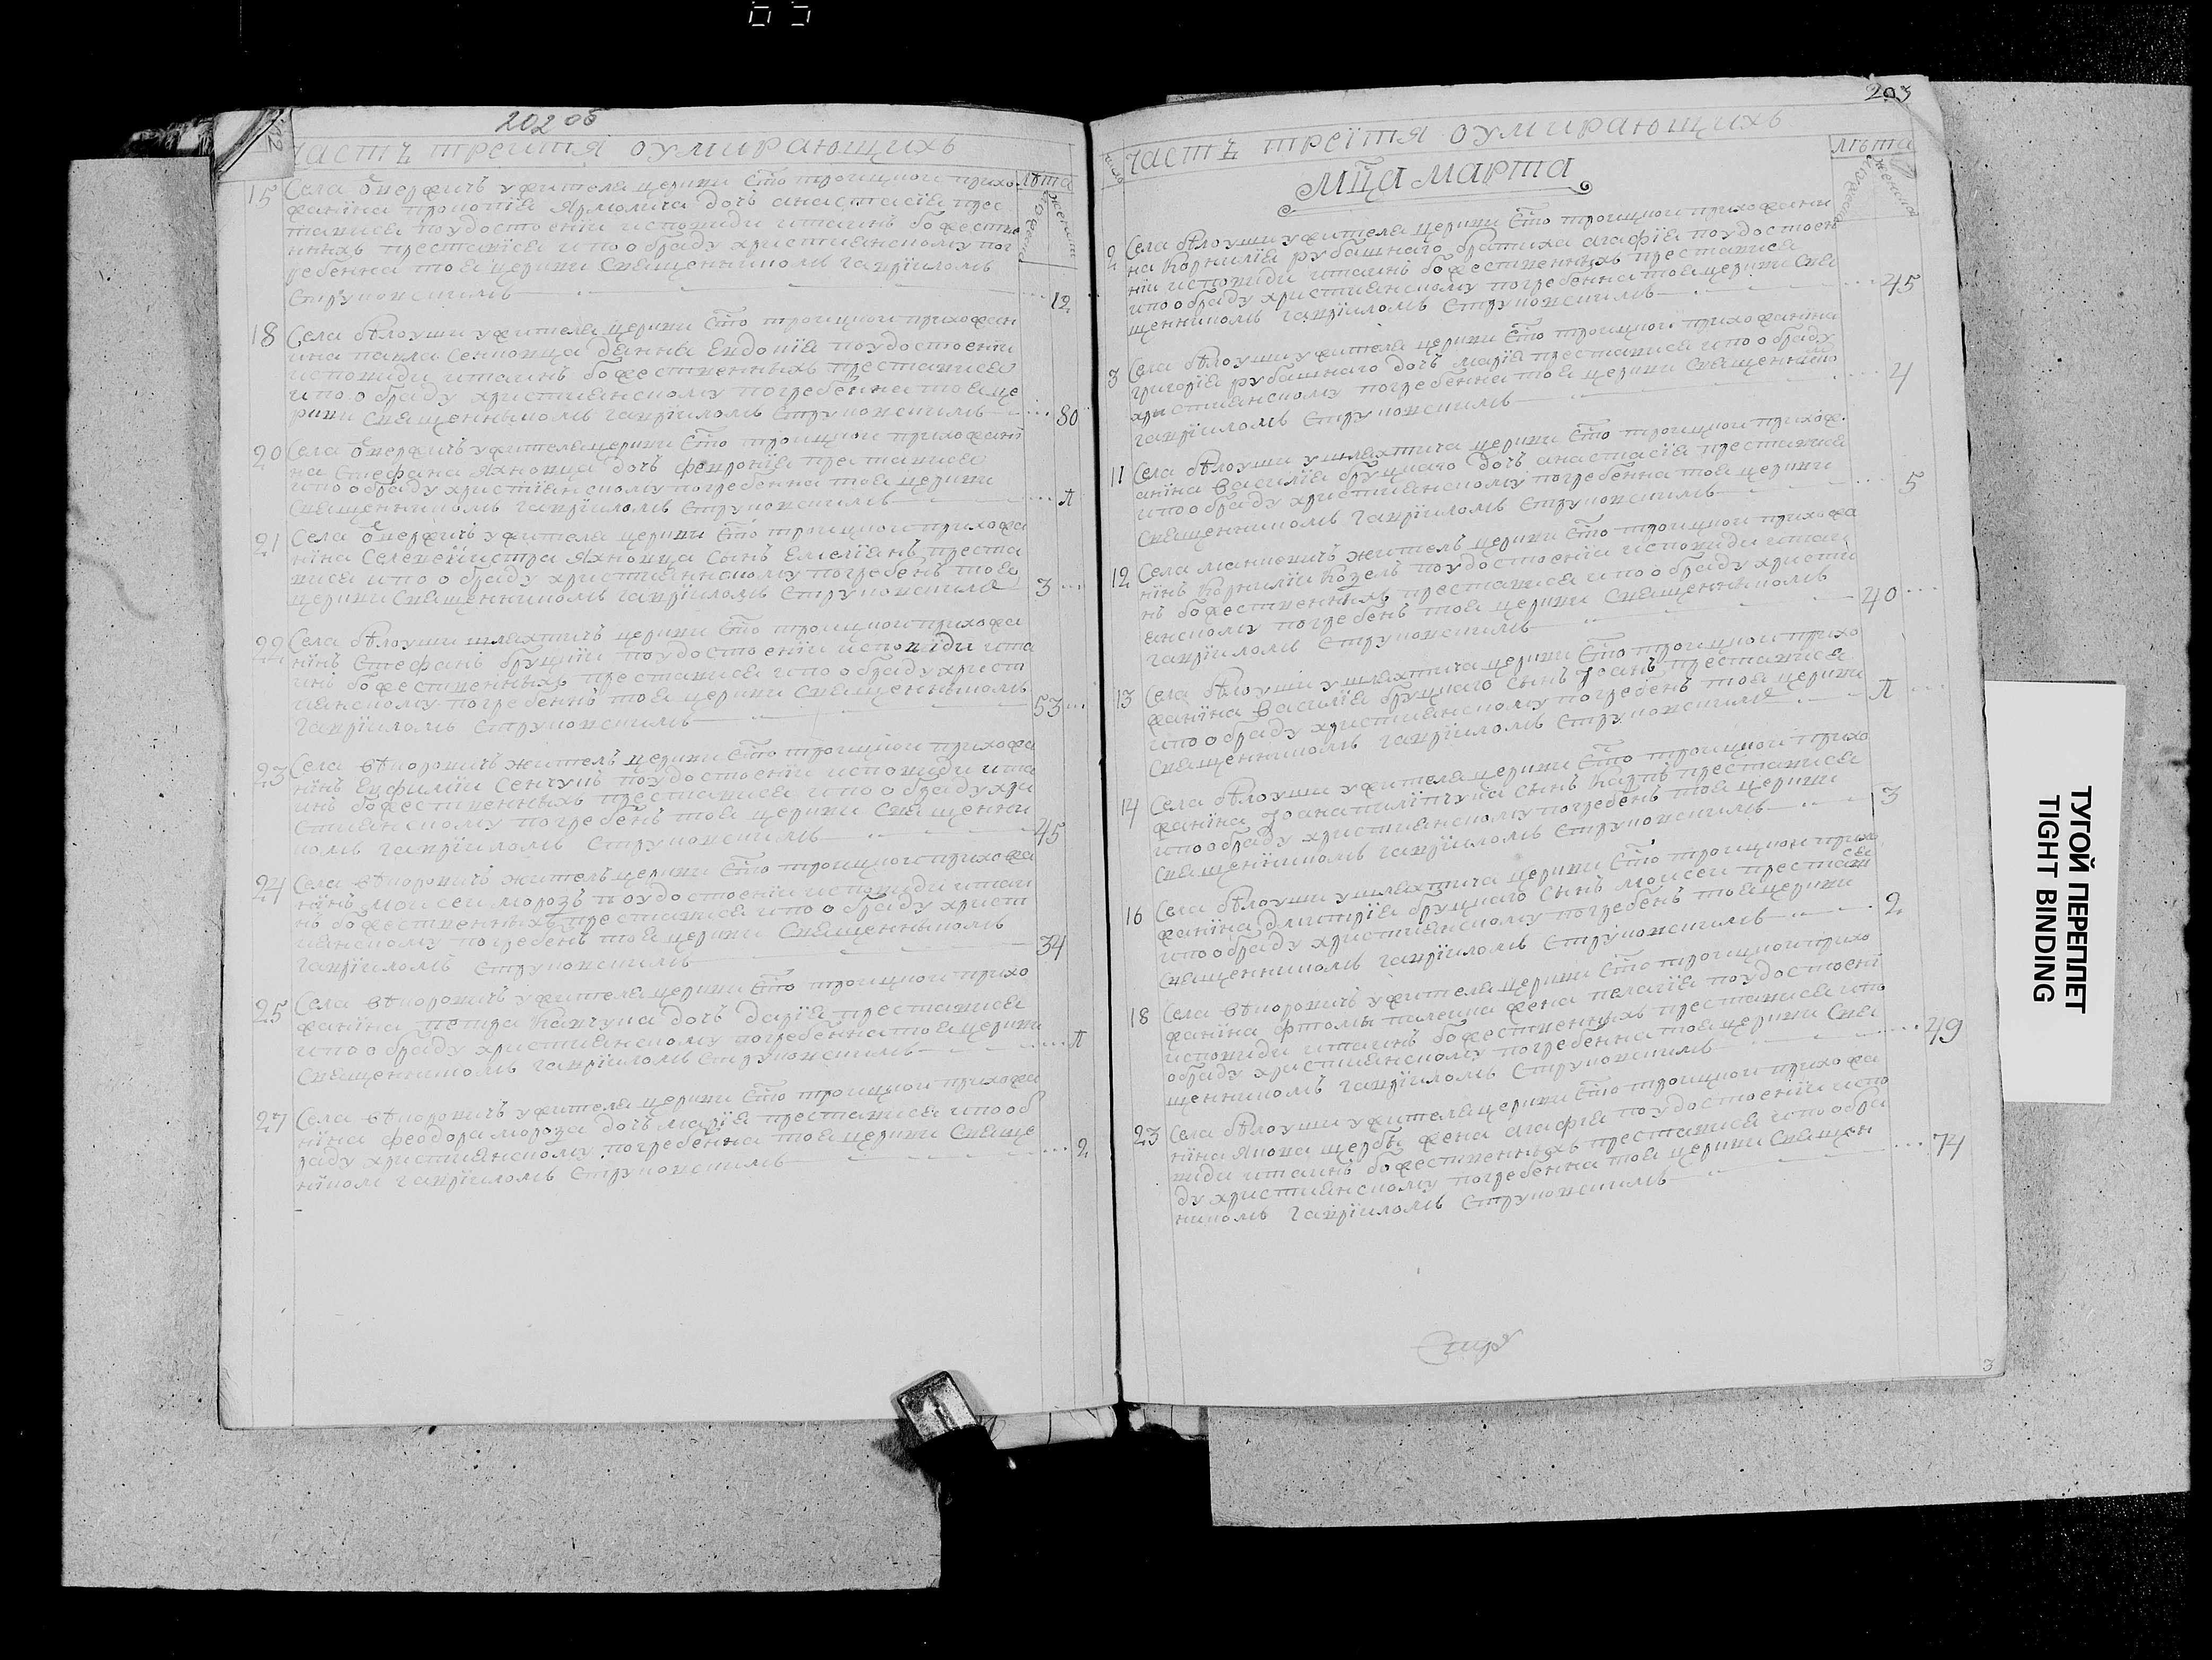 202 об
часть треітія оумирающихъ
лѣта
15 Села Оверфичъ ужителя церкви Сто троицкои прихо
жаніна прокопія Ярмолича дочъ анастасія прес
тавися поудостоеніи исповиди итаинъ божестве
нныхъ преставися ипо обряду християнскому пог
ребенна тоя церкви Священникомъ гавріиломъ
Струковскимъ 12
18 Села бѣлоуши ужителя церкви Сто троицкои прихожан
ина павла Сенковца Евдокія поудостоеніи
исповиди итаинъ божественныхъ преставися
ипо обряду християнскому погребенна тоя це
ркви Священникомъ гавріиломъ Струковскимъ 80
20 Села Оверфичъ ужителя церкви Сто троицкои прихожані
на Стефана Яхновца дочъ февронія преставися
ипо обряду християнскому погребенна тоя церкви
Священникомъ гавріиломъ Струковскимъ Л
21 Села Оверфичъ ужителя церкви Сто троицкои прихожа
ніна Селевеистра Яхновца Сынъ Емеліянъ преста
вися ипо обряду християнскому погребенъ тоя
церкви Священникомъ гавріиломъ Струковскимъ 3
22 Села бѣлоуши шляхтичъ церкви Сто троицкои прихожа
нінъ Стефанъ бруцкіи поудостоеніи исповиди ита
инъ божественныхъ преставися ипо обряду христ
иянскому погребенъ тоя церкви Священникомъ
гавріиломъ Струковскимъ 53
23 Села вѣкоровичъ житель церкви Сто троицкои прихожа
нінъ Евфиміи Сенчукъ поудостоеніи исповиди ита
инъ божественныхъ преставися ипо обряду хри
стиянскому погребенъ тоя церкви Священни
комъ гавріиломъ Струковскимъ 45
24 Села вѣкоровичъ житель церкви Сто троицкои прихожа
нінъ моисеи морозъ поудостоеніи исповиди итаи
нъ божественныхъ преставися ипо обряду христ
иянскому погребенъ тоя церкви Священникомъ
гавріиломъ Струковскимъ 34
25 Села вѣкоровичъ ужителя церкви Сто троицкои прихо
жаніна петра дочъ дарія преставися
ипо обряду християнскому погребенна тоя церкви
Священникомъ гавріиломъ Струковскимъ Л
27 Села вѣкоровичъ ужителя церкви Сто троицкои прихожа
ніна феодора мороза дочъ марія преставися ипо об
ряду християнскому погребенна тоя церкви Свяще
нікомъ гавріиломъ Струковскимъ 2
203
часть треітія оумирающихъ
лѣта
мца марта
2 Села бѣлоуши ужителя церкви Сто троицкои прихожани
на Корнилія рубашнаго братиха агафія поудостоен
ніи исповиди итаинъ божественныхъ преставися
ипо обряду християнскому погребенна тоя церкви Свя
щенникомъ гавріиломъ Струковскимъ 45
3 Села бѣлоуши ужителя церкви Сто троицкои прихожаніна
григорія рубашнаго дочъ марія преставися ипо обряду
християнскому погребенна тоя церкви Священнико
гавріиломъ Струковскимъ 4
11 Села бѣлоуши ушляхтича церкви Сто троицкои прихож
аніна василія бруцкаго дочъ анастасія преставися
ипо обряду християнскому погребенна тоя церкви
Священникомъ гавріиломъ Струковскимъ 5
12 Села манкевичъ житель церкви Сто троицкои прихожа
нінъ Корниліи Козелъ поудостоеніи исповиди итаи
нъ божественныхъ преставися ипо обряду христи
янскому погребенъ тоя церкви Священникомъ
гавріиломъ Струковскимъ 40
13 Села бѣлоуши ушляхтича церкви Сто троицкои прихо
жаніна василія бруцкаго Сынъ Іоанъ преставися
ипо обряду християнскому погребенъ тоя церкви
Священникомъ гавріиломъ Струковскимъ Л
14 Села бѣлоуши ужителя церкви Сто троицкои прихо
жаніна Іоана пиліпчука Сынъ Карпъ преставися
ипо обряду християнскому погребенъ тоя церкви
Священнікомъ гавріиломъ Струковскимъ 3
16 Села бѣлоуши ушляхтича церкви Сто троицкои прихо
жаніна дмитрія бруцкаго Сынъ моисеи преставися
ипо обряду християнскому погребенъ тоя церкви
Священникомъ гавріиломъ Струковскимъ 2
18 Села вѣкоровичъ ужителя церкви Сто троицкои прихо
жаніна фтомы жена пелагія поудостоені
исповиди итаинъ божественныхъ преставися ипо
обряду християнскому погребенна тоя церкви Свя
щенникомъ гавріиломъ Струковскимъ 49
23 Села бѣлоуши ужителя церкви Сто троицкои прихожа
ніна Якова щербы жена агафія поудостоеніи испо
види итаинъ божественныхъ преставися ипо обря
ду християнскому погребенна тоя церкви Священ
никомъ гавріиломъ Струковскимъ 74
3
ТУГОЙ ПЕРЕПЛЕТ
TIGHT BINDING